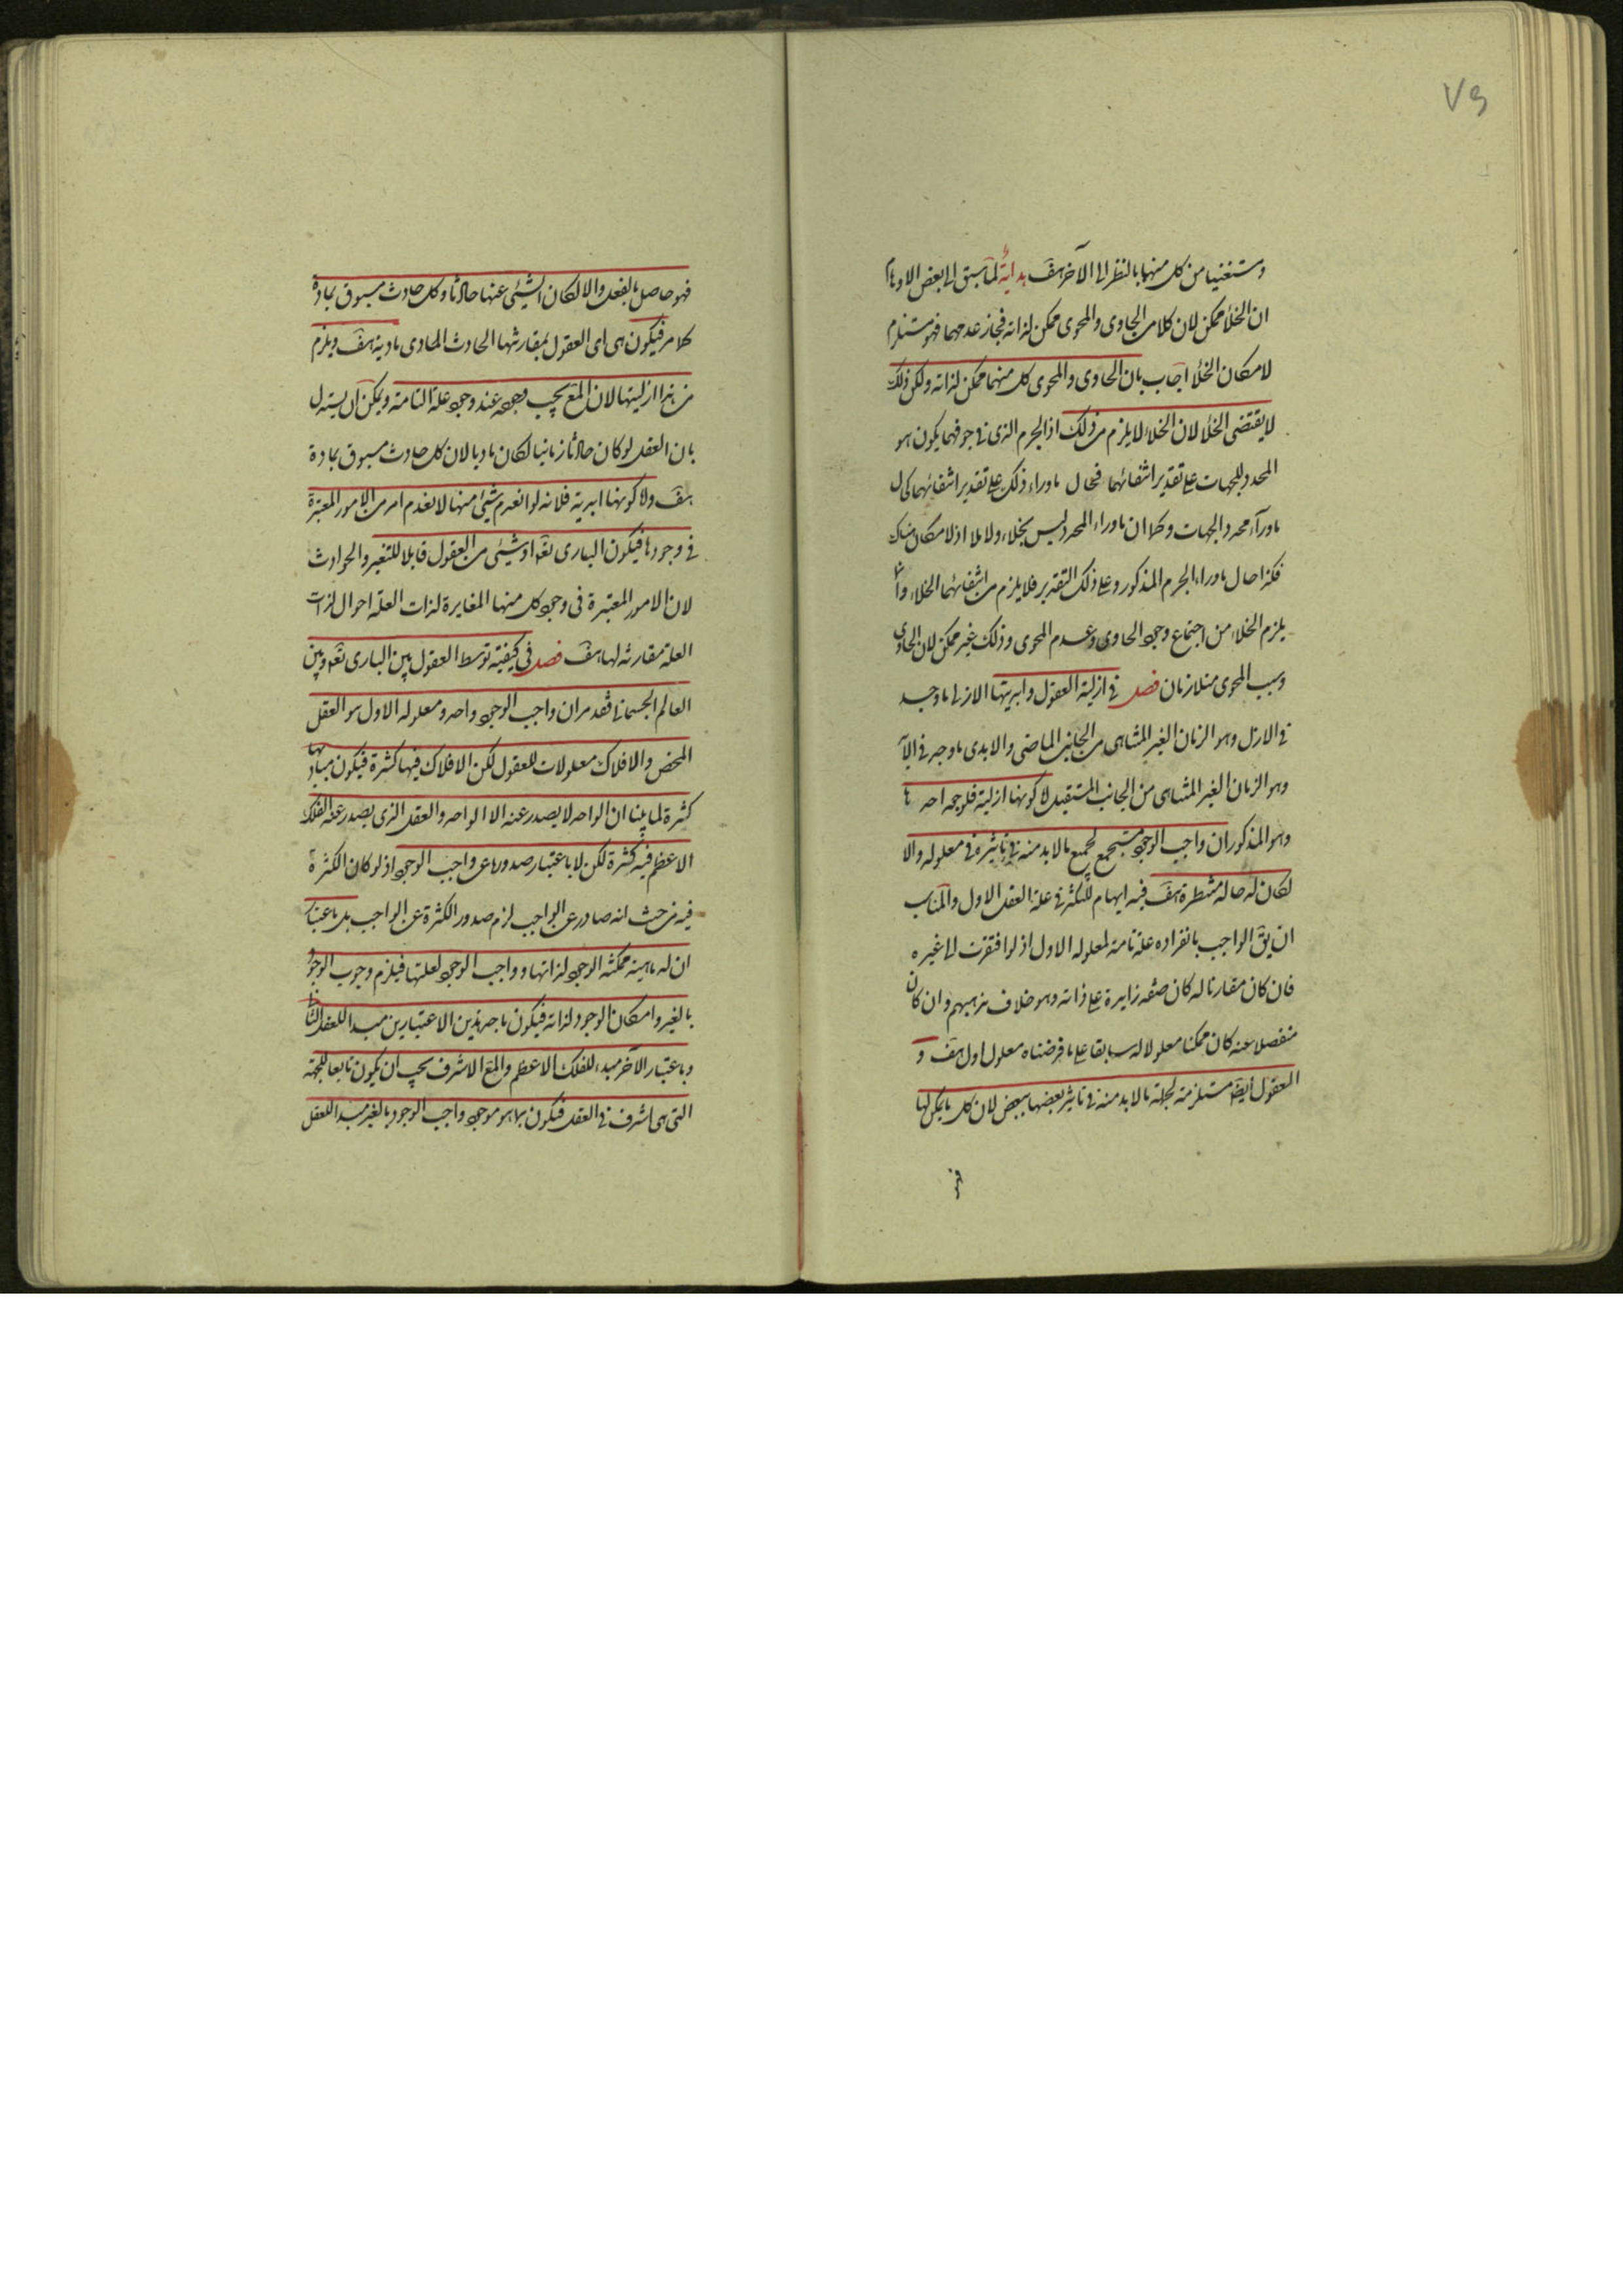 ٧٥
ومستغنيا من كل منهما بالنظر الى الآخر هف بداية لما سبق الى بعض الاوهام
ان الخلأ ممكن لان كلا من الحاوى والمحوى ممكن لذاته فجاز عدمهما فهو مستلزم
لامكان الخلأ اجاب بان الحاوى والمحوى كل منهما ممكن لذاته ولكن ذلك
لا يقتضى الخلأ لان الخلاء لا يلزم من ذلك اذ الجرم الذى فى جوفهما يكون هو
المحدد للجهات على تقدير انتفائهما فحال ماوراء ذلك على تقدير انتفائهما كحال
ماوراء محدد الجهات وكما ان ماوراء المحدد ليس بخلاء ولا ملا اذ لا مكان هناك
فكذا حال ماوراء الجرم المذكور وعلى ذلك التقدير فلا يلزم من انتفائهما الخلاء وانما
يلزم الخلاء من اجتماع وجود الحاوى وعدم المحوى وذلك غير ممكن لان الحاوى
وسبب المحوى متلازمان فصل فى ازلية العقول وابديتها الازلى ما وجد
فى الازل وهو الزمان الغير المتناهى من الجانب الماضى والابدى ما وجد فى الابد
وهو الزمان الغير المتناهى من الجانب المستقبل اما كونها ازلية فلوجهين احدها
وهو المذكور ان واجب الوجود مستجمع لجميع ما لا بد منه فى تأثيره فى معلوله والا
لكان له حالة منتظرة هف فيه ايهام للتكثر فى علة العقل الاول والمناسب
ان يق الواجب بانفراده علة تامة لمعلوله الاول اذ لو افتقرت الى غيره
فان كان مقارنا له كان صفة زايدة على ذاته وهو خلاف مذهبهم وان كان
منفصلا عنه كان ممكنا معلولا له سابقا على ما فرضناه معلول اول هف و
العقول ايضا مستلزمة لجملة ما لا بد منه فى تأثير بعضها ببعض لان كل ما يمكن لها
فهو حاصل بالفعل والا لكان الشيئ عنها حادثا وكل حادث مسبوق بمادة
كما مر فيكون هى اى العقول بمقارنتها الحادث المادى مادية هف ويلزم
من هذا ازليتها لان المع يجب وجوده عند وجود علة التامة ويمكن ان يستدل
بان العقل لو كان حادثا زمانيا لكان ماديا لان كل حادث مسبوق بمادة
هف واما كونها ابدية فلانه لو انعدم شيئ منها لانعدم امر من الامور المعتبرة
فى وجودها فيكون البارى تعه او شيئى من العقول قابلا للتغير والحوادث
لان الامور المعتبرة فى وجود كل منها المغايرة لذات العلة احوال لذات
العلة مقارنة لها هف فصل فى كيفية توسط العقول بين البارى تعه وبين
العالم الجسمانى قد مر ان واجب الوجود واحد ومعلوله الاول هو العقل
المحض والافلاك معلولات للعقول لكن الافلاك فيها كثرة فيكون مباديها
كثرة لما بينا ان الواحد لا يصدر عنه الا الواحد والعقل الذى يصدر عنه الفلك
الاعظم فيه كثرة لكن لا باعتبار صدورها عن واجب الوجود اذ لو كان الكثرة
فيه من حيث انه صادر عن الواجب لزم صدور الكثرة عن الواجب بل باعتبار
ان له ماهية ممكنة الوجود لذاتها وواجب الوجود لعلتها فيلزم وجوب الوجود
بالغير وامكان الوجود لذاته فيكون باحد هذين الاعتبارين مبدا للعقل الثانى
وباعتبار الآخر مبدء للفلك الاعظم والمع الاشرف يجب ان يكون تابعا للجهة
التى هى اشرف فى العقل فيكون بما هو موجود واجب الوجود بالغير مبدا للعقل